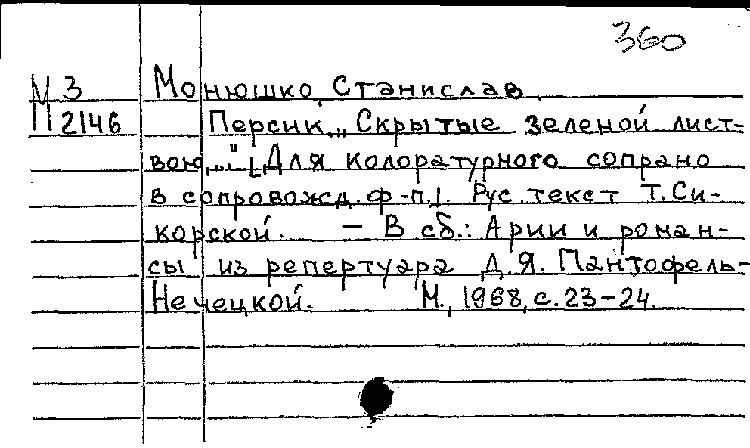 360
М 3 Монюшко, Станислав.
П 2146 Персик. „Скрытые зеленой лист-
вою..." [Для колоратурного сопрано
в сопровожд. ф-п.]. Рус. текст Т. Си-
корской. — В сб.: Арии и роман-
сы из репертуара Д. Я. Пантофель-
Нечецкой. М., 1968, с. 23-24.